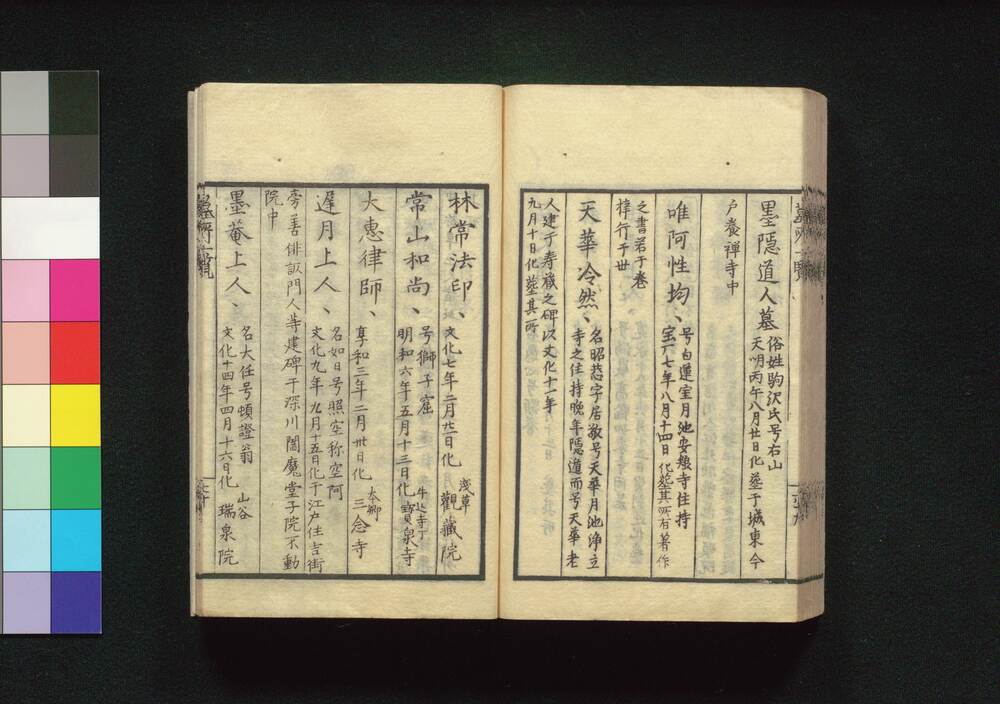 墨隠道人墓
俗姓駒沢氏号右山
天明丙午八月廿日化葬于城東今
戸養禅寺中
唯阿性均、
号白蓮室月池安養寺住持
宝六七年八月十四日化葬其所有著作
之書若干巻
梓行于世
天華冷然、
名昭慈字居敬号天華月池浄立
寺之住持晩年隠遁而号天華老
人建于寿蔵之碑以文化十一年
九月十日化葬其所
林常法印、
文化七年二月廿一日化
浅草
観蔵院
常山和尚、
号獅子窟
明和六年五月十三日化
牛込寺丁
宝泉寺
大惠律師、
享和三年二月卅日化
本郷
三念寺
遅月上人、
名如日号照空称空阿
文化九年九月十五日化于江戸住吉街
旁善俳諧門人等建碑于深川閻魔堂子院不動
院中
墨菴上人、
名大任号頓證翁
文化十四年四月十六日化
山谷
瑞泉院